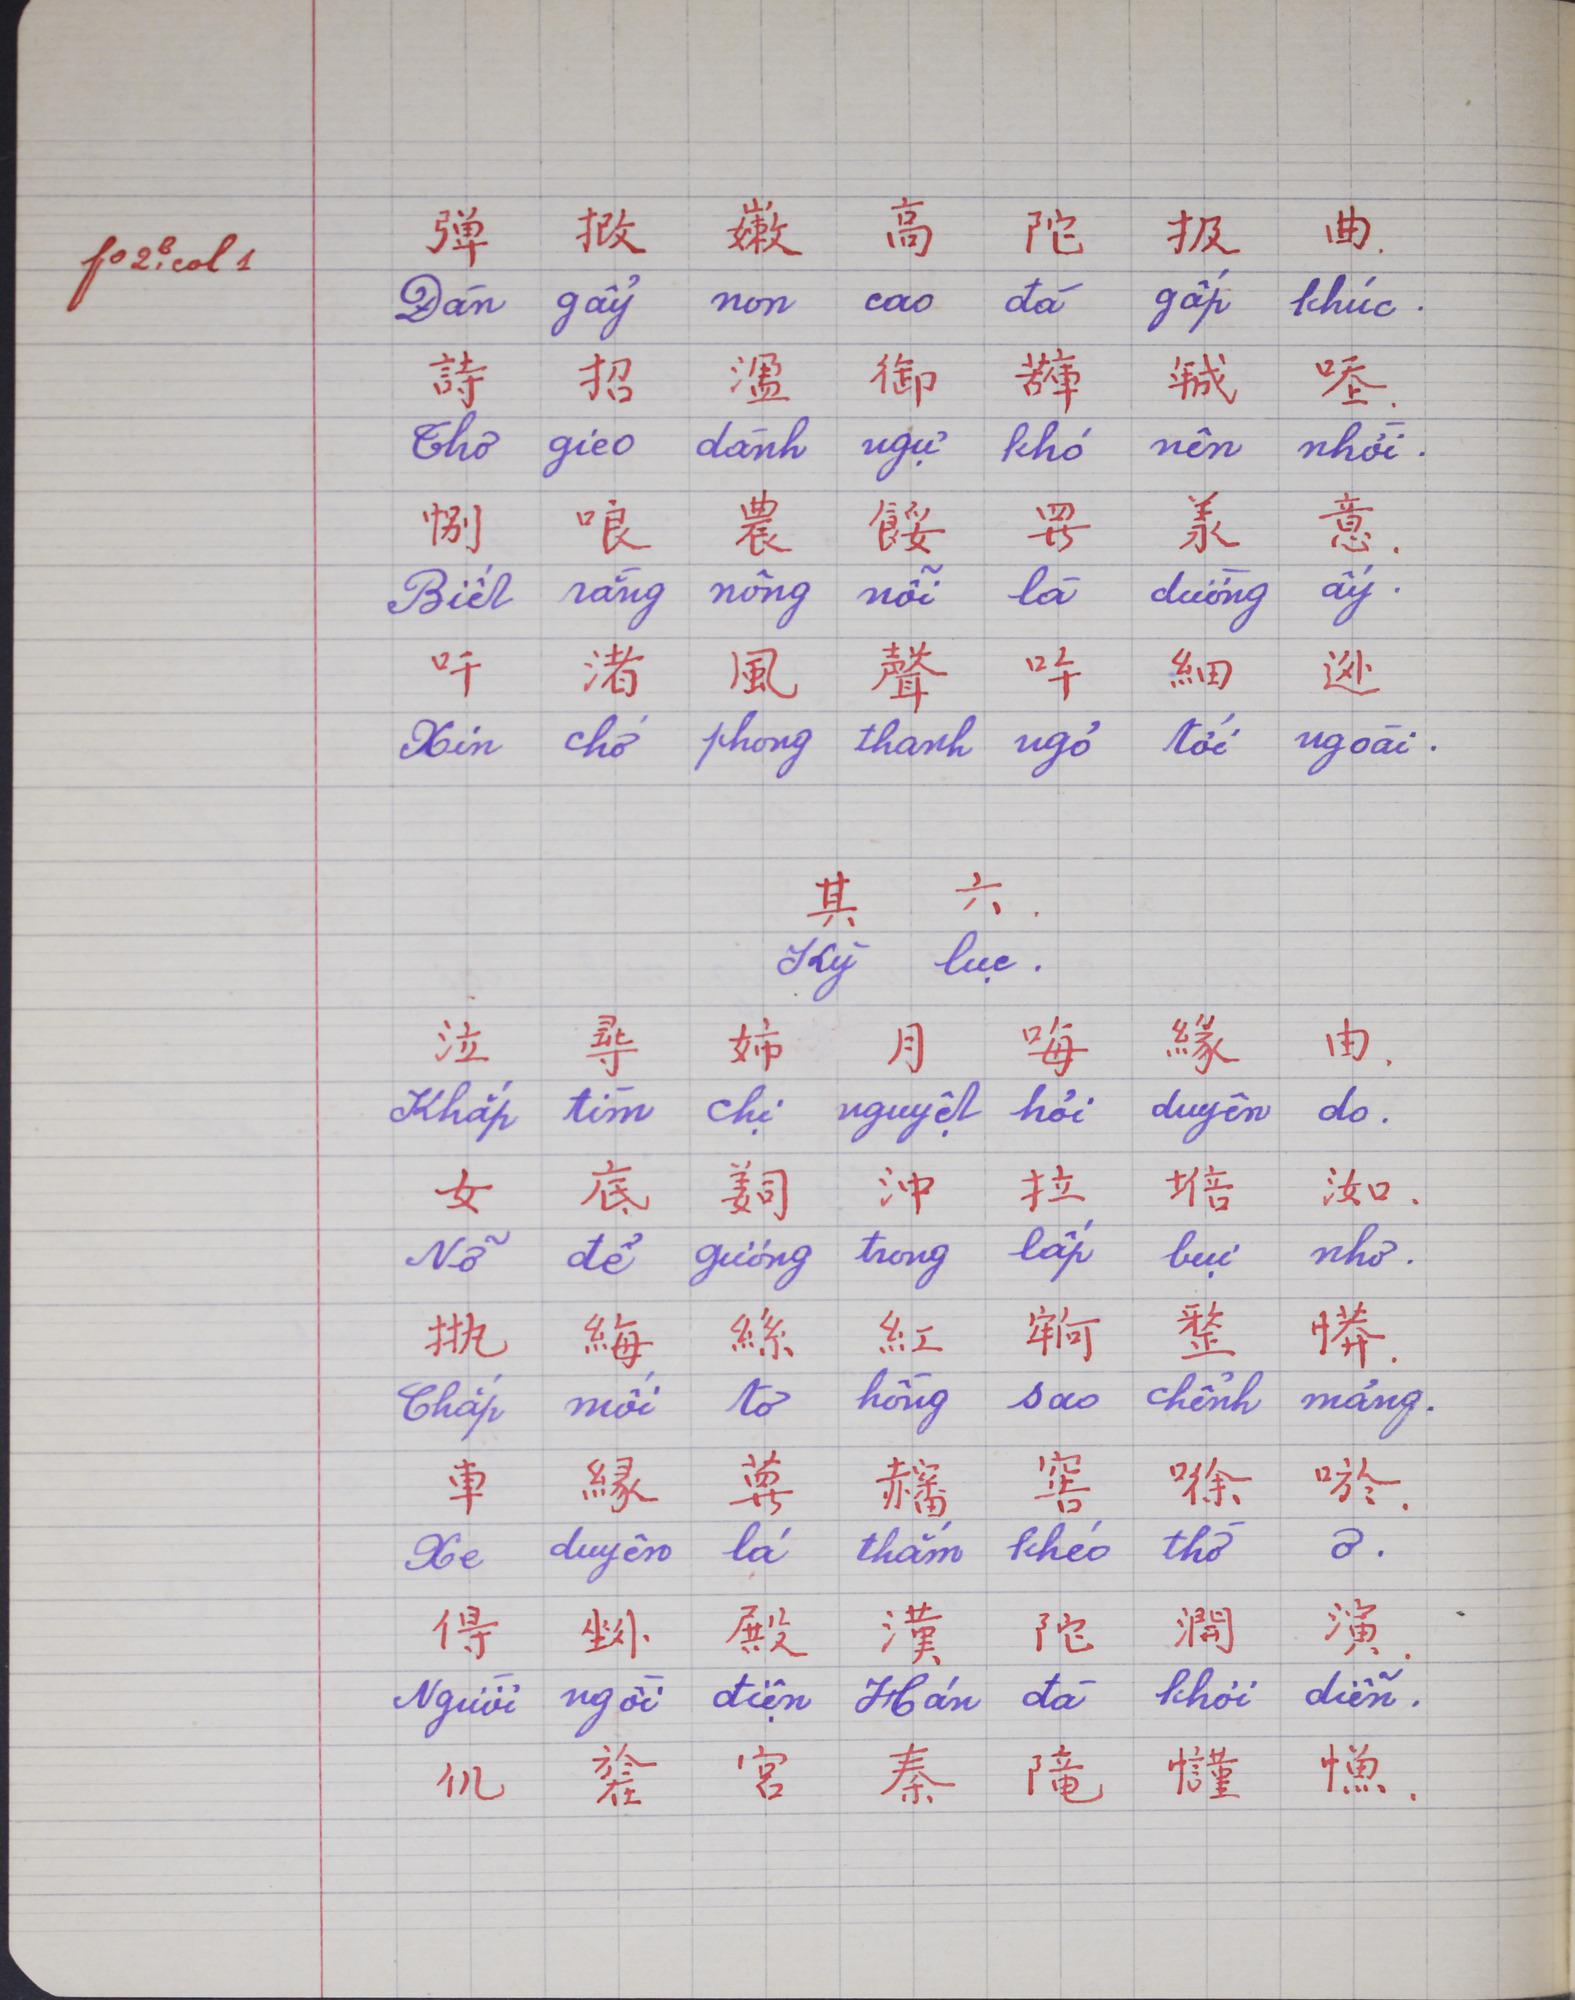 fo 2b. col 1
弹 扨 嫩 高 陀 扱 曲.
Đàn gẩy non cao đà gấp khúc.
詩 招 溋 御 𧁷 𢧚 㖼.
Thơ gieo dành ngự khó nên nhời.
別 哴 農 餒 羅 羕 意.
Biết rằng nông nỗi là dường ấy.
吀 渚 風 聲 吘 細 外
Xin chớ phong thanh ngỏ tới ngoài.
其 六.
Kỳ lục.
泣 尋 姉 月 晦 緣 由.
Khắp tìm chị nguyệt hỏi duyên do.
女 底 𦎛 沖 拉 培 洳.
Nỡ để gương trong lấp bụi nhơ.
执 䋦 絲 紅 牢 整 㦄.
Chắp mối tơ hồng sao chểnh mảng.
車 緣 蘿 𧹰 窖 㗵 唹.
Xe duyên lá thắm khéo thờ ơ.
得 𡎥 殿 漢 陀 濶 演.
Người ngồi điện Hán đà khơi diễn.
仉 𣄒 宮 秦 隌 慬 𢠐.